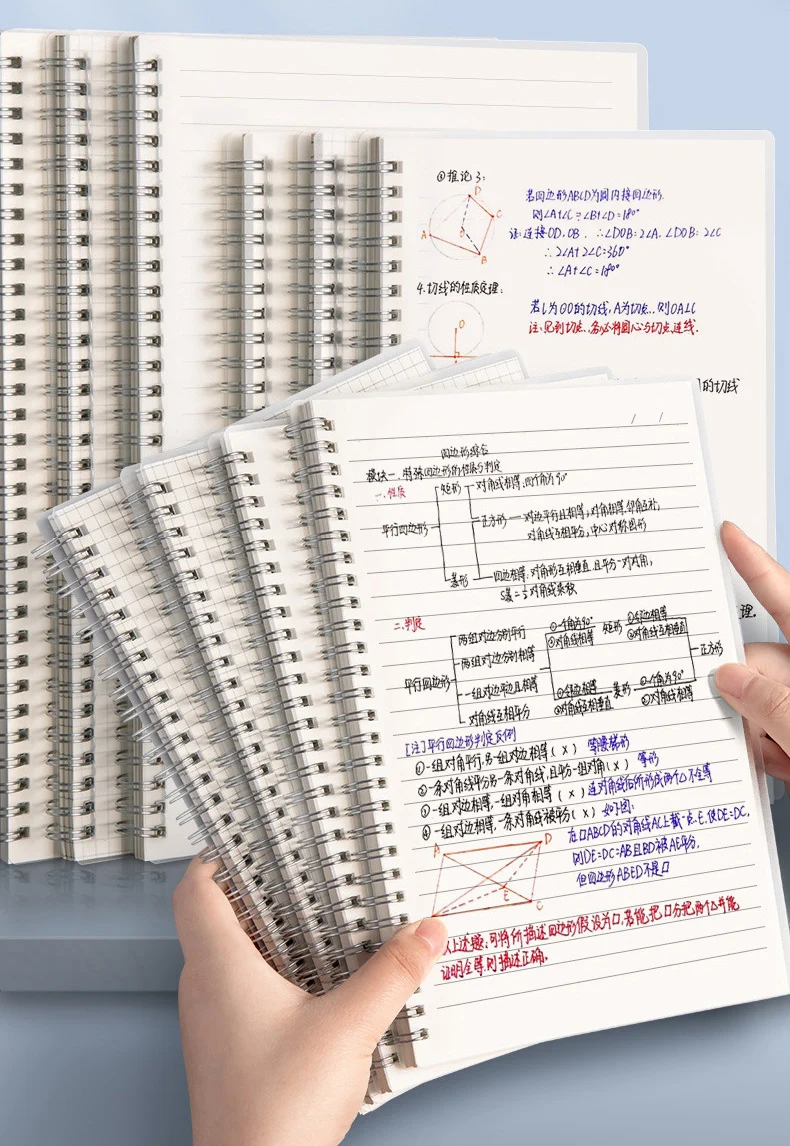 ④推论3:
D
C
A
O
B
若四边形ABCD为圆内接四边形.
则∠A+∠C=∠B+∠D=180°
证:连接OD,OB. ∴∠DOB=2∠A.∠DOB=2∠C
∴2∠A+2∠C=360°
∴∠A+∠C=180°
4.切线的性质定理:
O
若l为⊙O的切线,A为切点..则OA⊥l
注:见到切点..务必将圆心与切点连线.
的切线
理.
/ /
四边形综合
模块一.特殊四边形的性质与判定
一.性质
平行四边形
矩形 — 对角线相等,四个角为90°
正方形 — 对边平行且相等,对角相等.邻角互补,
对角线互相平分,中心对称图形
菱形 — 四边相等.对角形互相垂直.且平分一对对角,
S菱=½对角线乘积
二.判定
平行四边形
两组对边分别平行
两组对边分别相等
一组对边平边且相等
对角线互相平分
①一个角为90°
②对角线相等
矩形
①邻边相等
②对角线互相垂直
①邻边相等
②对角线互相垂直
菱形
①一个角为90°
②对角线相等
正方形
[注]平行四边形判定反例
①一组对角平行.另一组对边相等(×) 等腰梯形
②一条对角线平分另一条对角线,且平分一组对角(×) 筝形
③一组对边相等,一组对角相等(×)连对角线后所形成两个△不全等
④一组对边相等,一条对角线被平分(×) 如下图:
A
D
E
C
在□ABCD的对角线AC上截一点E,使DE=DC,
则DE=DC=AB且BD被AE平分,
但四边形ABED不是□
以上述题:可将所描述四边形假设为□.若能把□分把两个△并能
证明全等.则描述正确.